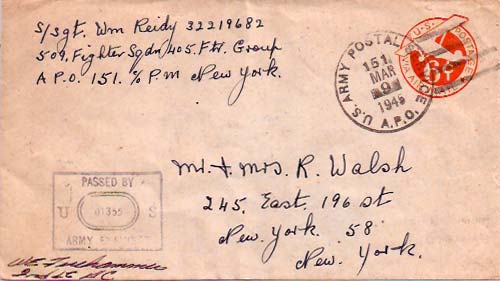 S/Sgt. Wm Reidy 32219682
509. Fighter Sqdn 405. Ftr. Group
A.P.O. 151. % P.M New York.
U.S. ARMY POSTAL
151
MAR
9
1945
A.P.O.
U.S. POSTAGE
6¢
Mr. + Mrs R. Walsh
245. East. 196 st
New. york. 58.
New. York.
PASSED BY
U S
ARMY EXAMINER
2nd Lt. A.C.